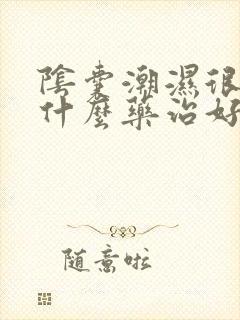 陰囊潮濕很
什麼藥治好
随意啦